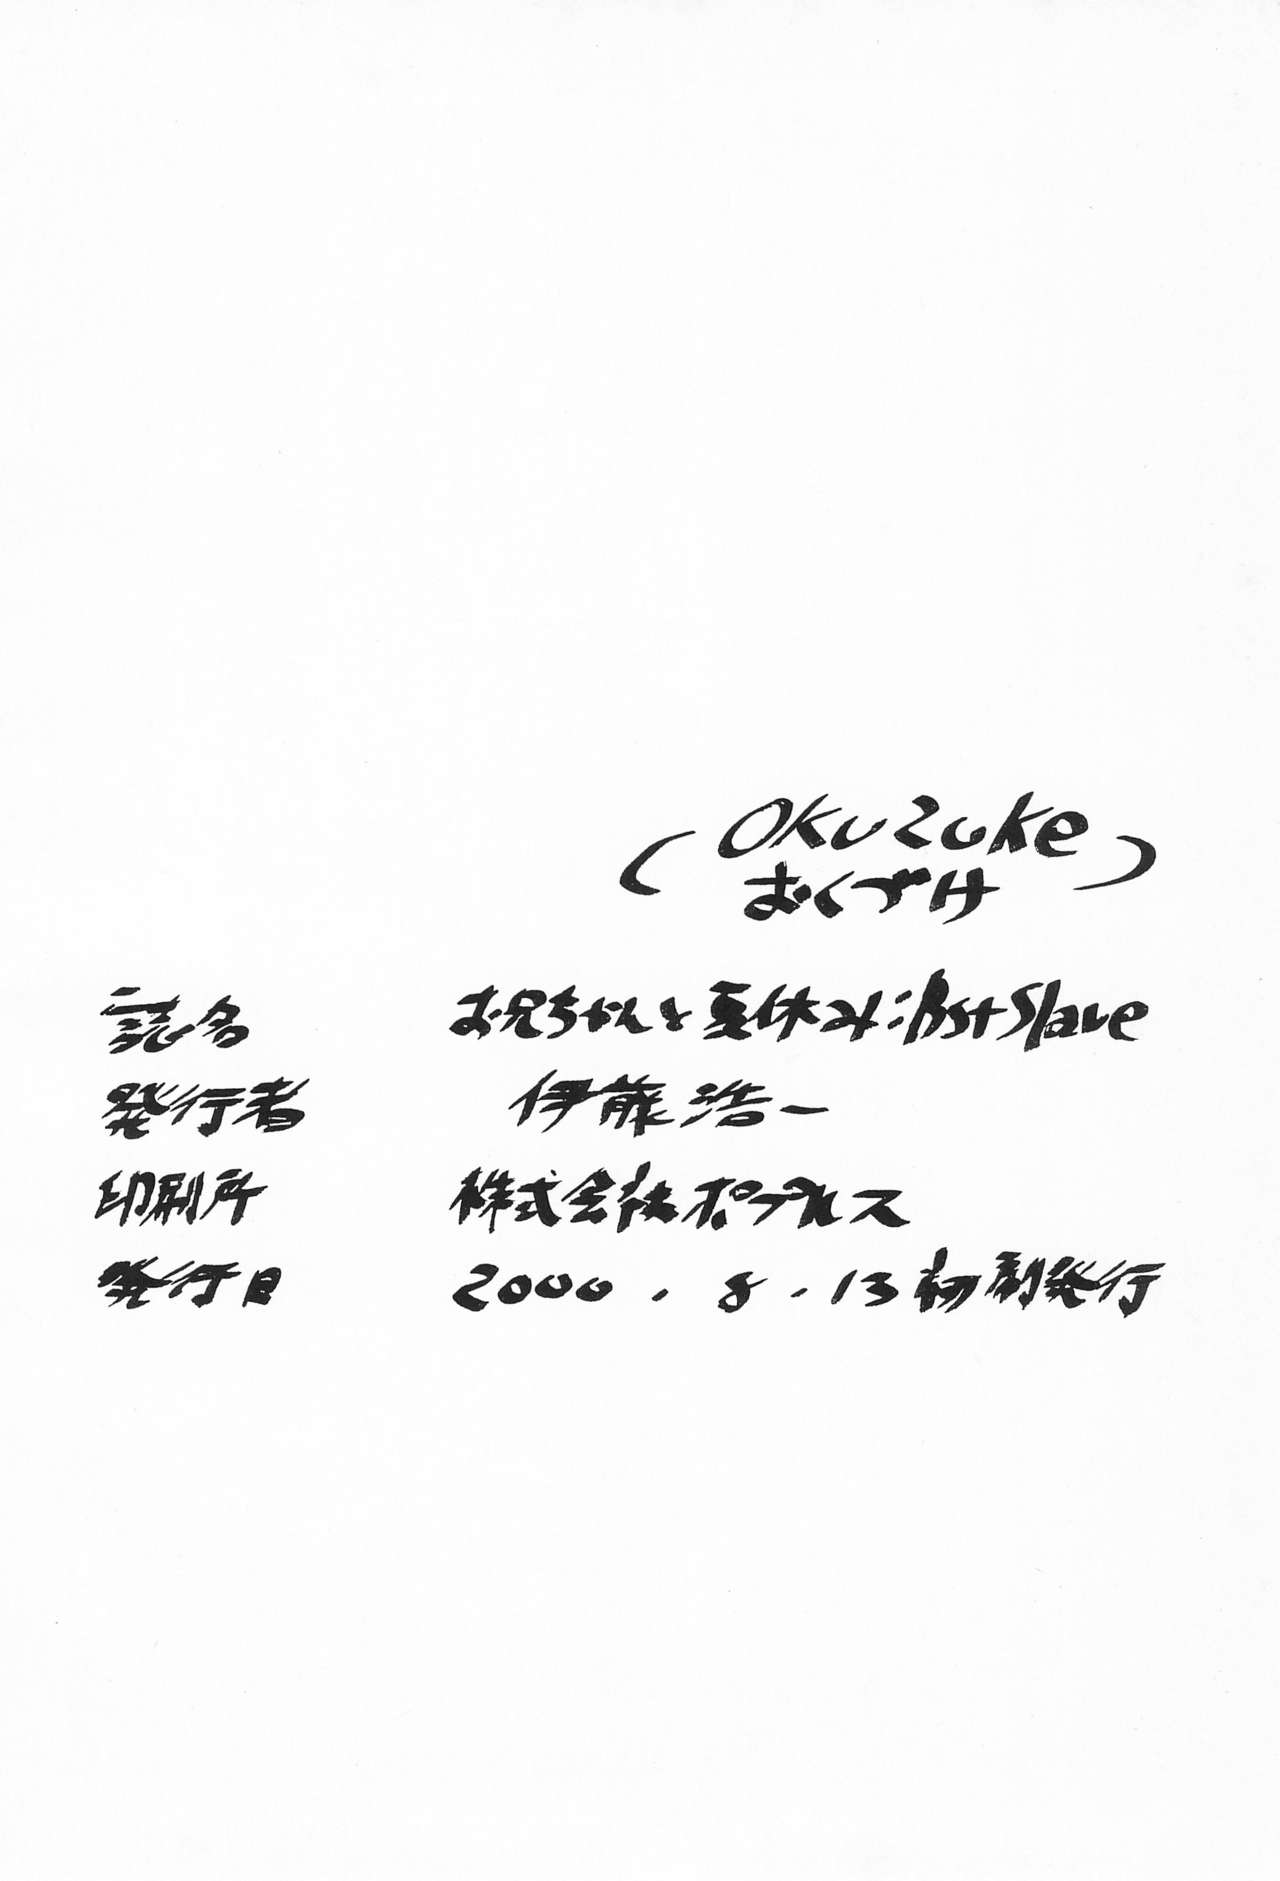 (Okuzuke
おくづけ)
誌名 お兄ちゃんと夏休み:first Slave
発行者 伊藤浩一
印刷所 株式会社ポプルス
発行日 2000.8.13初刷発行